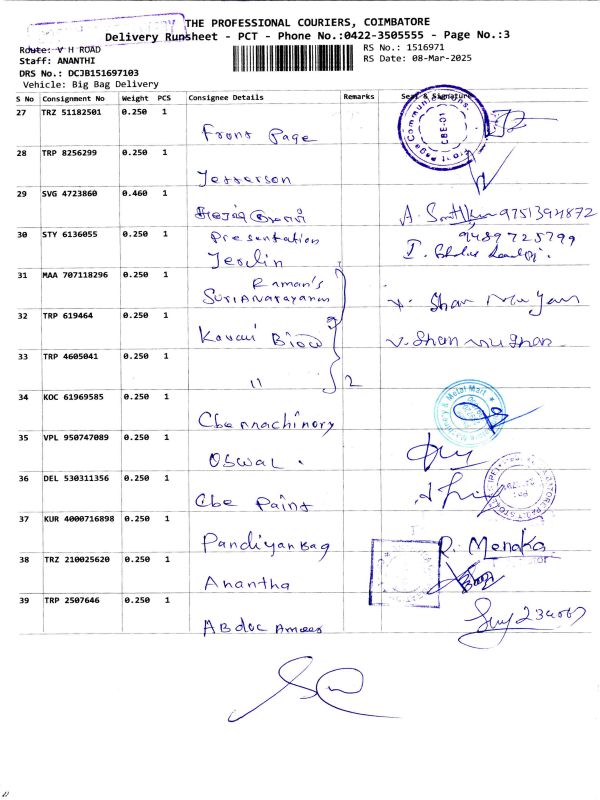 THE PROFESSIONAL COURIERS, COIMBATORE
Delivery Runsheet - PCT - Phone No.:0422-3505555 - Page No.:3
Route: V H ROAD
RS No.: 1516971
Staff: ANANTHI
RS Date: 08-Mar-2025
DRS No.: DCJB151697103
Vehicle: Big Bag Delivery
S No Consignment No Weight PCS Consignee Details Remarks Seal & Signature
27 TRZ 51182501 0.250 1
Front Page
Front Page Communications. CBE-01
28 TRP 8256299 0.250 1
Jefferson
29 SVG 4723860 0.460 1
9751394872
30 STY 6136055 0.250 1 Presentation 9489725799
Jerlin
31 MAA 707118296 0.250 1 Raman's
Surianarayanan
32 TRP 619464 0.250 1
33 TRP 4605041 0.250 1
V. Shanmugham
11 2
34 KOC 61969585 0.250 1
Cbe machinory
35 VPL 950747089 0.250 1
OSWAL.
36 DEL 530311356 0.250 1
Cbe Paint
37 KUR 4000716898 0.250 1
Pandiyan Bag R. Menaka
38 TRZ 210025620 0.250 1
Anantha
39 TRP 2507646 0.250 1
Abdul Ameer